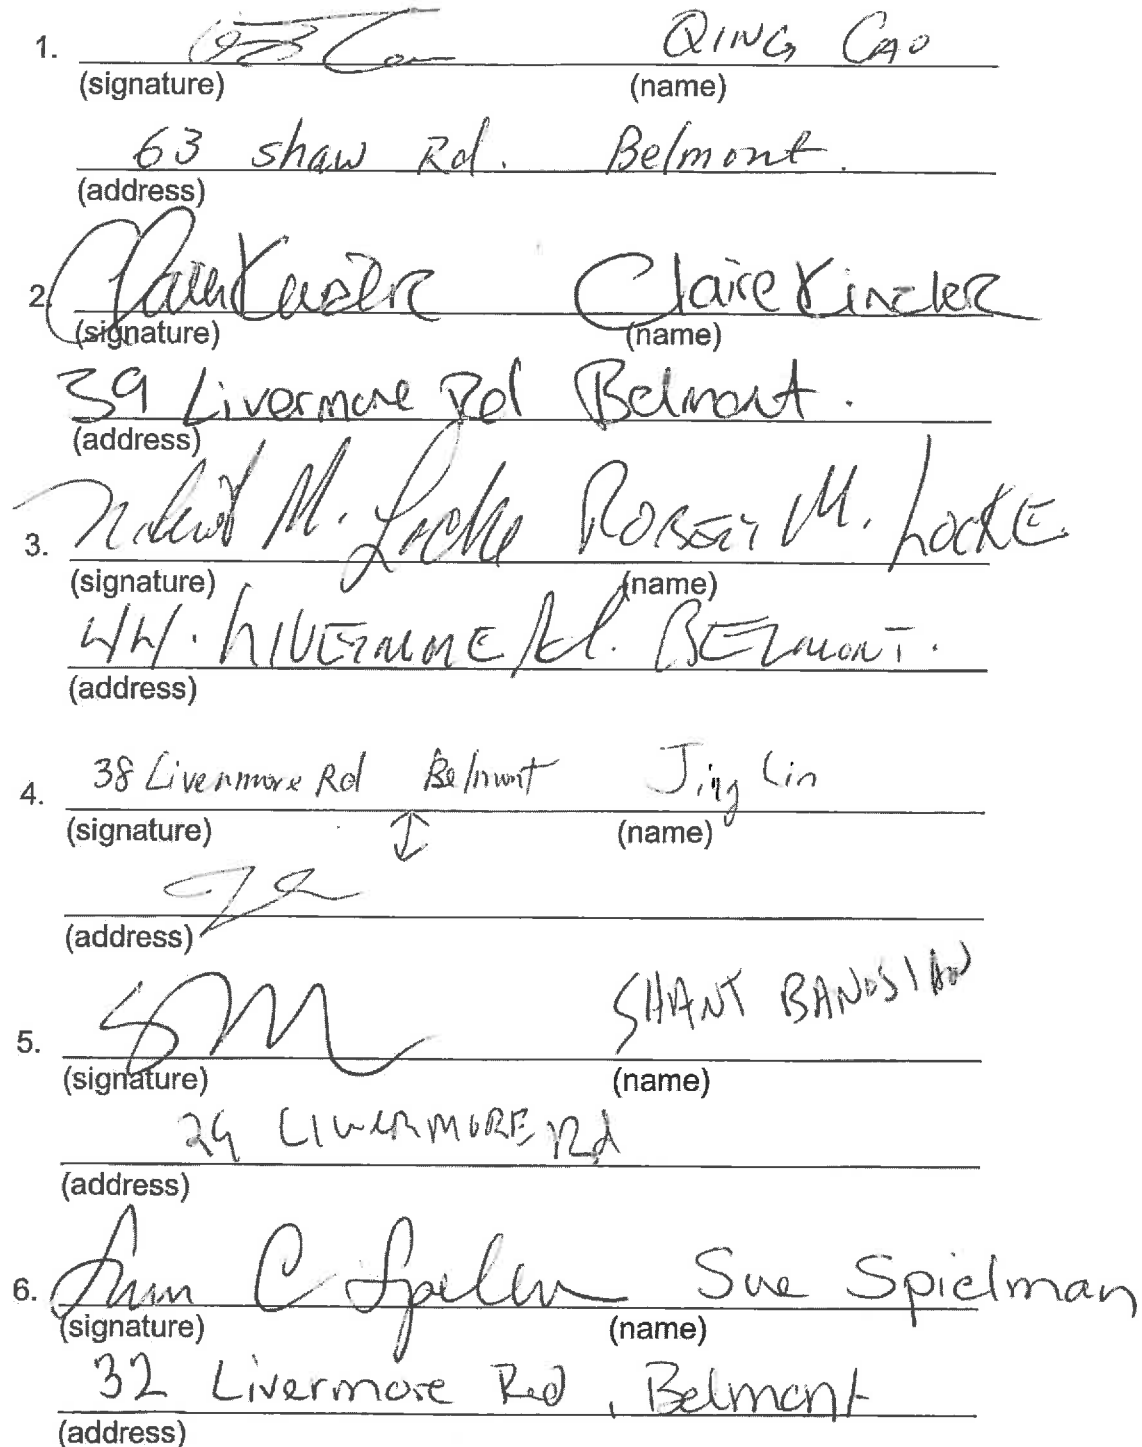 1. QING CAO
(signature) (name)
63 shaw Rd. Belmont.
(address)
2. Claire Kinzler
(signature) (name)
39 Livermore Rd Belmont.
(address)
3. Robert M. Locke ROBERT M. LOCKE.
(signature) (name)
44. LIVERMORE Rd. BELMONT.
(address)
4. 38 Livermore Rd Belmont Jing Lin
(signature) (name)
(address)
5. SHANT BANOSIAN
(signature) (name)
29 LIVERMORE Rd
(address)
6. Sue Spielman
(signature) (name)
32 Livermore Rd, Belmont
(address)